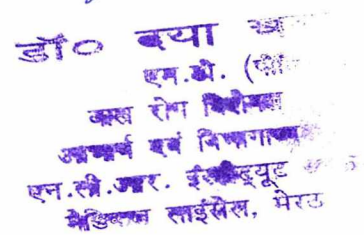 डॉ० दया
एम.डी.
बाल रोग विशेषज्ञ
आचार्य एवं विभागाध्यक्ष
एन.सी.आर. इंस्टिट्यूट
मेडिकल साईंसेस, मेरठ